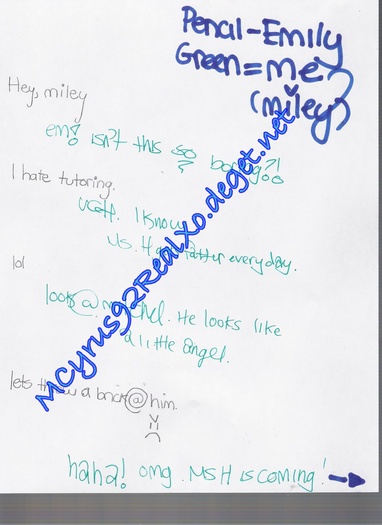 Pencil-Emily
Green=me
(miley)
Hey, miley
em! isn't this so boring?!
I hate tutoring.
ugh. I know
Ms. H fatter everyday.
lol
look@ He looks like
a little angel.
lets a brick@him.
haha! omg. MSH is coming!
mcyrus92RealXo.deget.net